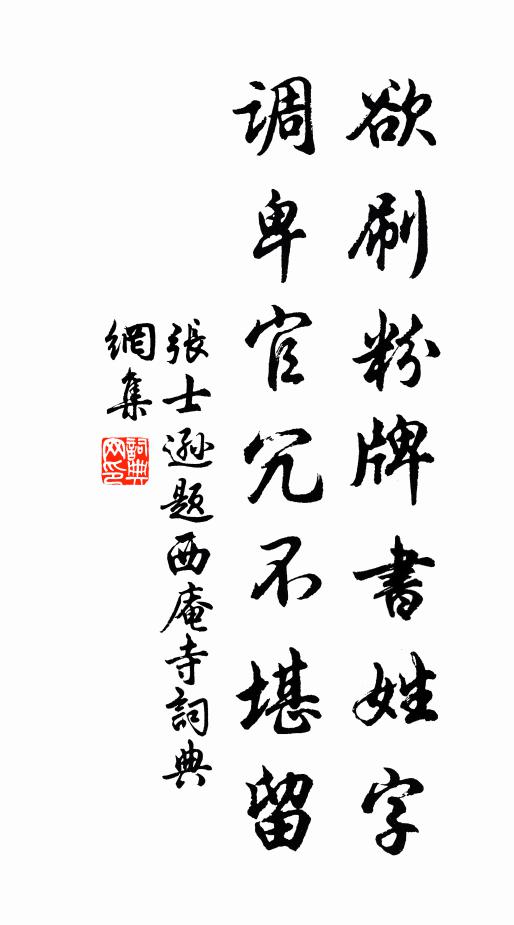 欲刷粉牌書姓字
调卑官冗不堪留
張士遜题西庵寺詞典
網集
詞典网印